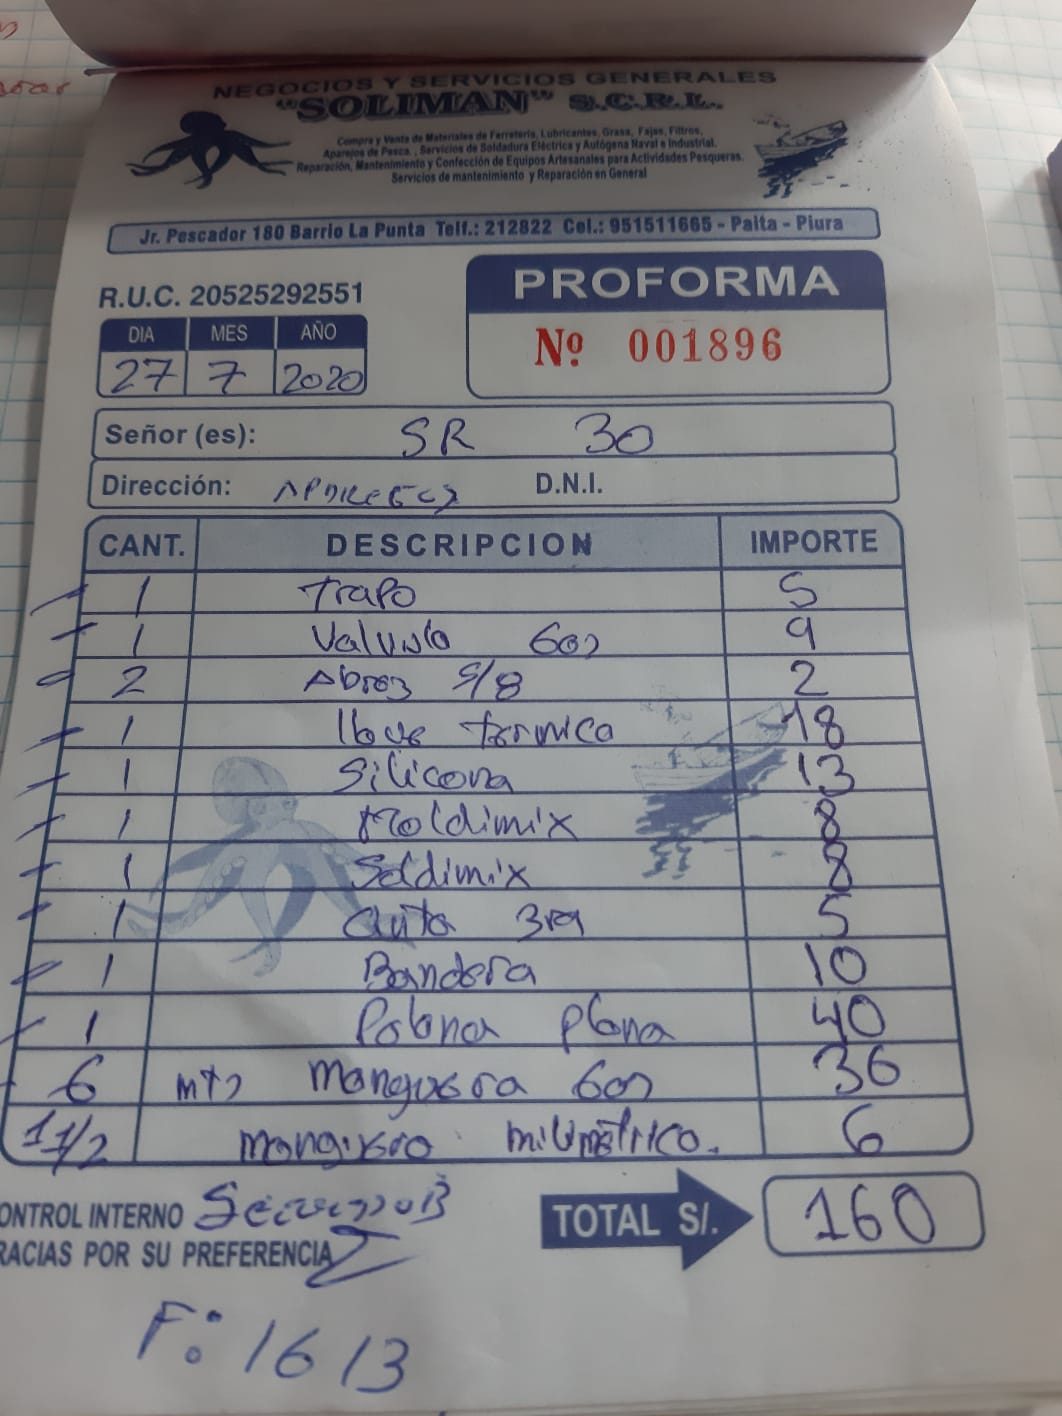 NEGOCIOS Y SERVICIOS GENERALES
"SOLIMAN" S.C.R.L.
Compra y Venta de Materiales de Ferretería, Lubricantes, Grasa, Fajas, Filtros,
Aparejos de Pesca, Servicios de Soldadura Eléctrica y Autógena Naval e Industrial.
Reparación, Mantenimiento y Confección de Equipos Artesanales para Actividades Pesqueras.
Servicios de mantenimiento y Reparación en General
Jr. Pescador 180 Barrio La Punta Telf.: 212822 Cel.: 951511665 - Paita - Piura
R.U.C. 20525292551
PROFORMA
Nº 001896
DIA MES AÑO
27 7 2020
Señor (es): SR 30
Dirección: D.N.I.
CANT. DESCRIPCION IMPORTE
1 Trapo 5
1 Valvula 9
2 5/8 2
1 llave termica 18
1 Silicona 13
1 Moldimix 8
1 Soldimix 8
1 3ra 5
1 Bandera 10
1 Palana plana 40
6 mts manguera 36
1 1/2 milimetrico. 6
ONTROL INTERNO
RACIAS POR SU PREFERENCIA
TOTAL S/. 160
F: 1613